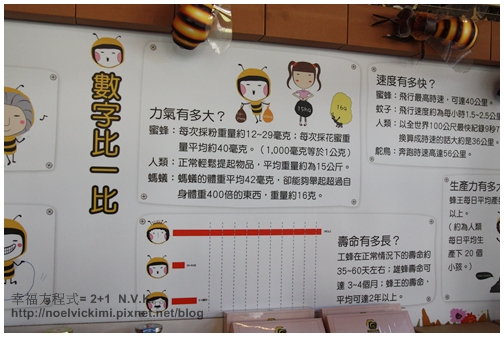 數字比一比
力氣有多大?
蜜蜂:每次採粉重量約12~29毫克;每次採花蜜重
量平均約40毫克。(1,000毫克等於1公克)
人類:正常輕鬆提起物品,平均重量約為15公斤。
螞蟻:螞蟻的體重平均42毫克,卻能夠舉起超過自
身體重400倍的東西,重量約16克。
15kg
1kg
速度有多快?
蜜蜂:飛行最高時速,可達40公里。
蚊子:飛行速度約為每小時1.5~2.5公
人類:以全世界100公尺最快紀錄9秒
換算成時速的話大約是36公里。
鴕鳥:奔跑時速高達56公里。
壽命有多長?
工蜂在正常情況下的壽命約
35~60天左右;雄蜂壽命可
達 3~4個月;蜂王的壽命,
平均可達2年以上。
生產力有多
蜂王每日平均產
以上。
(約為人類
每日平均生
產下 20 個
小孩。)
幸福方程式= 2+1 N.V.K
http://noelvickimi.pixnet.net/blog